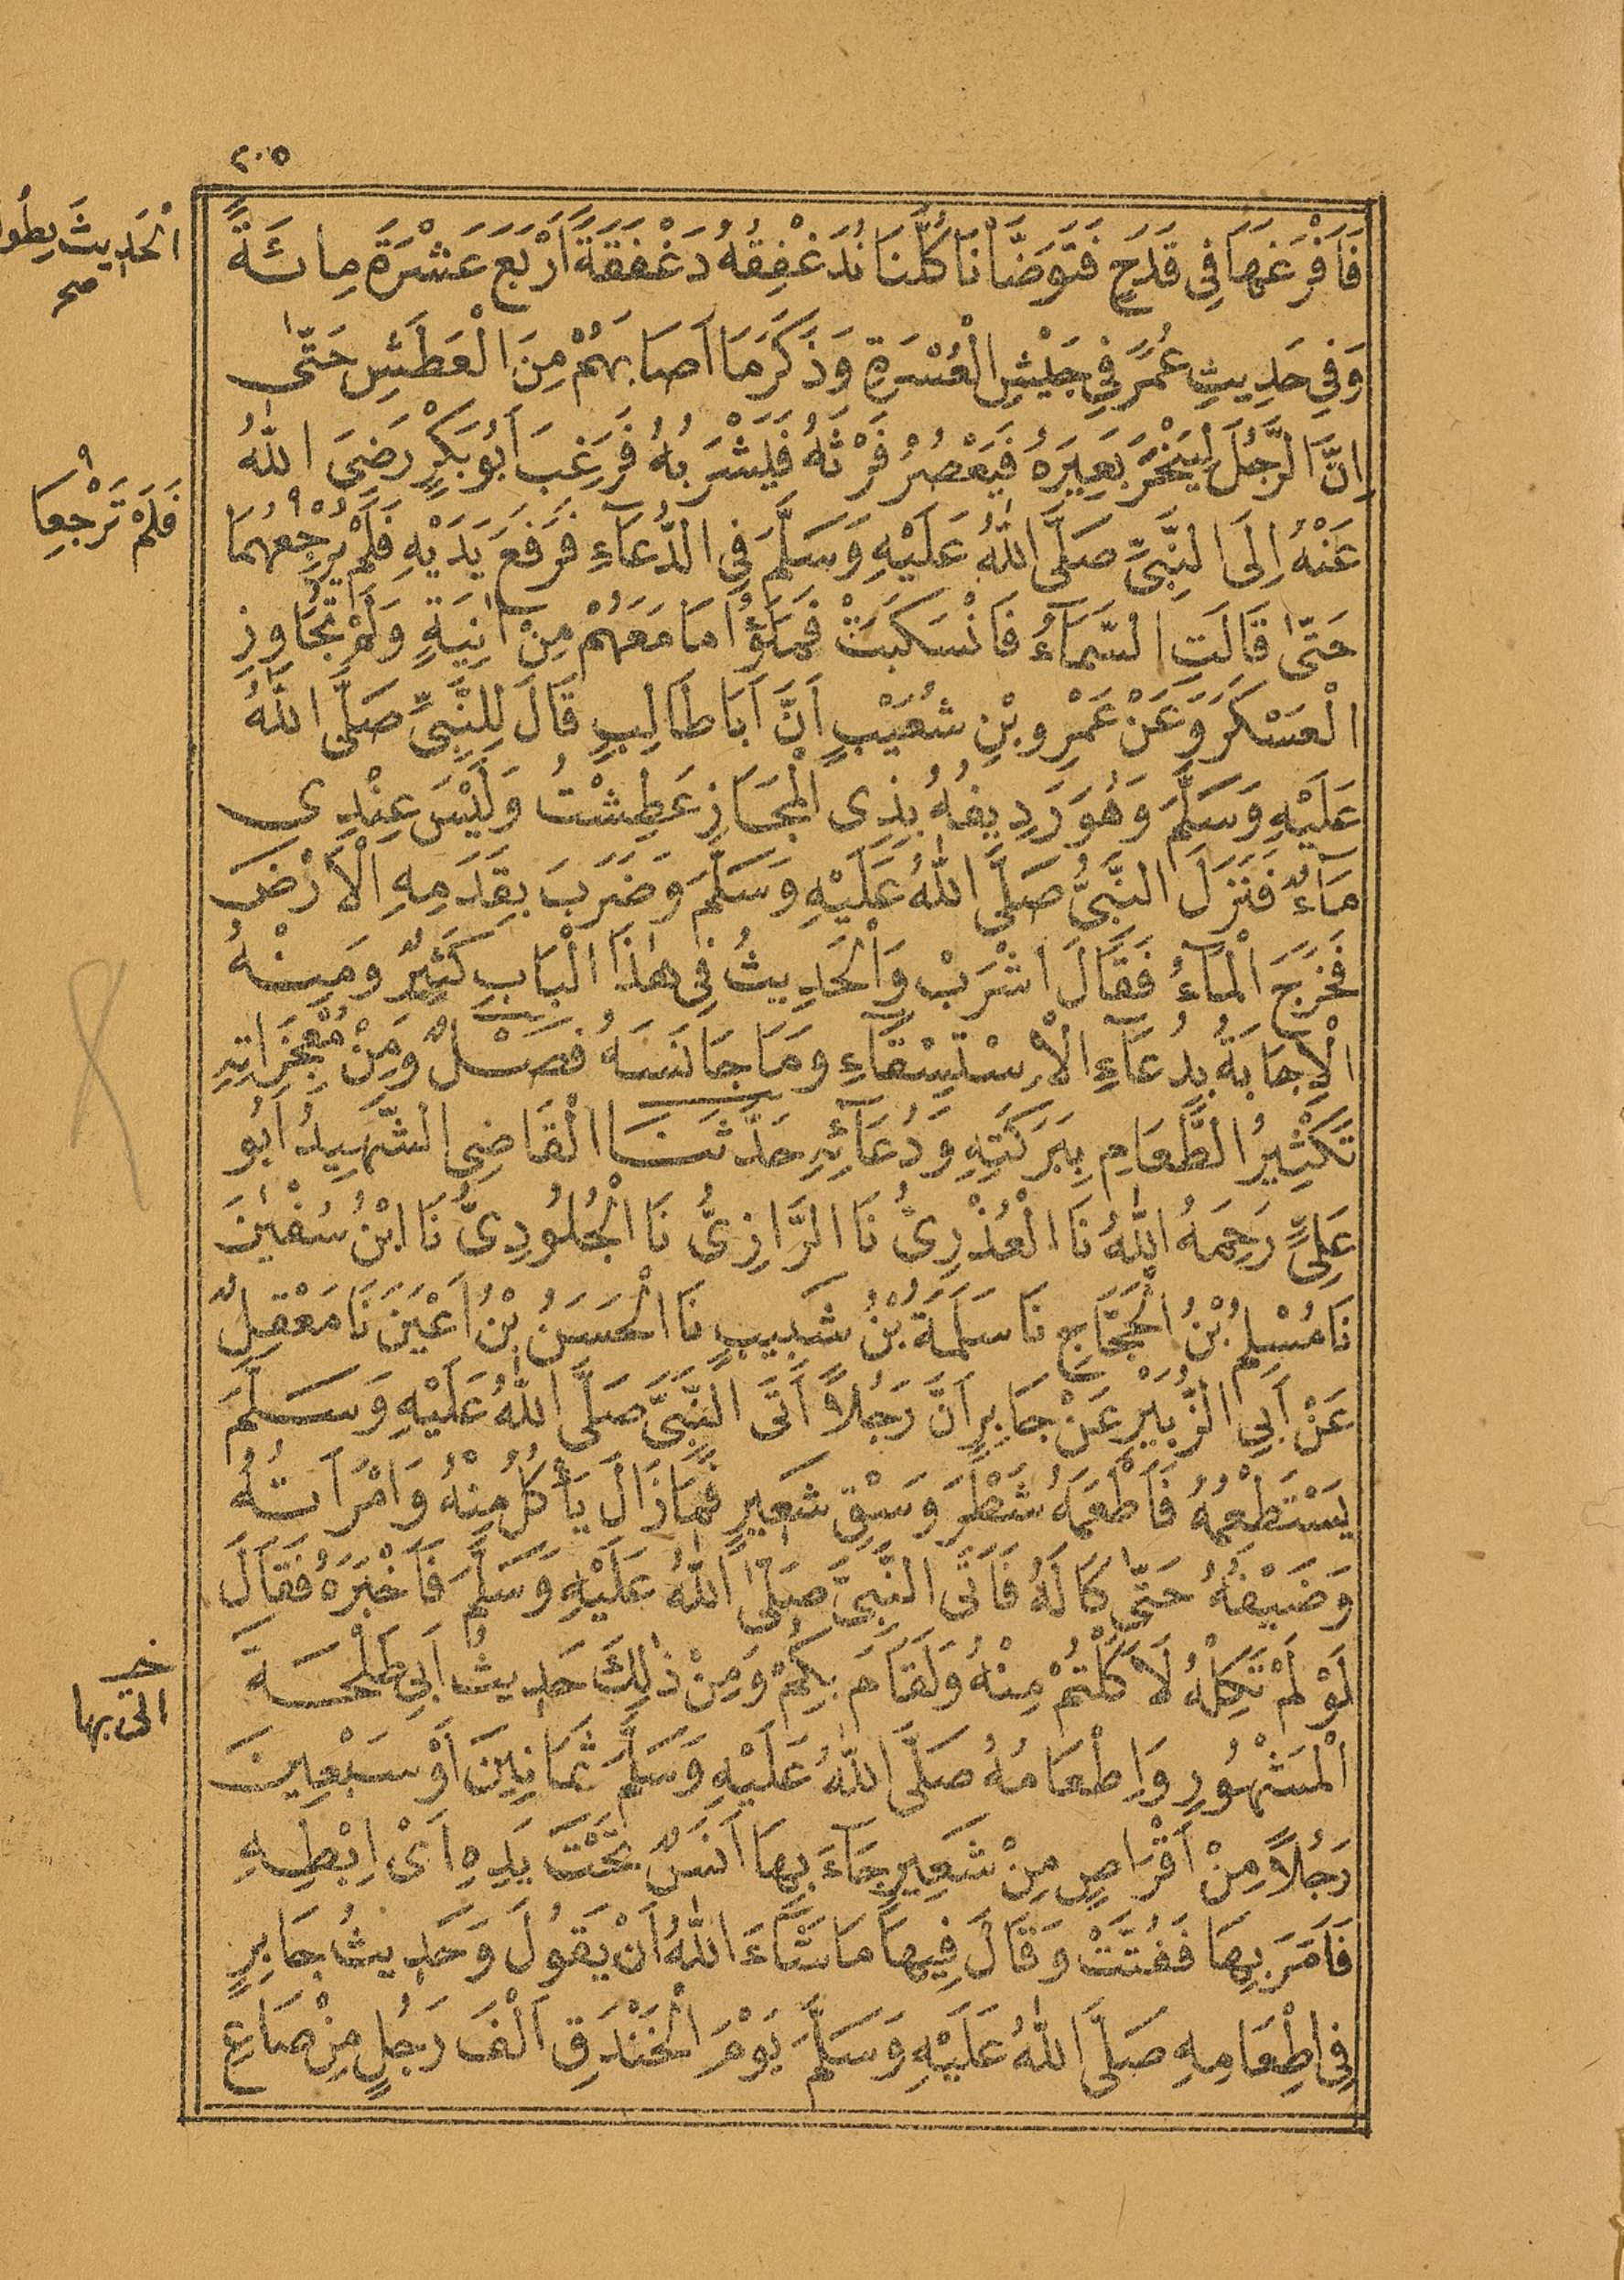 ٢٠٥
فَاَفْرَغَهَا فِى قَدَحٍ فَتَوَضَّأْنَا كُلُّنَا نُدَغْفِقُهُ دَغْفَقَةً اَرْبَعَ عَشْرَةَ مِائَةً
اَلْحَدِيثَ بِطُولِ
صح
وَفِى حَدِيثِ عُمَرَ فِى جَيْشِ الْعُسْرَةِ وَذَكَرَ مَا اَصَابَهُمْ مِنَ الْعَطَشِ حَتّٰى
اِنَّ الرَّجُلَ لَيَنْحَرُ بَعِيرَهُ فَيَعْصُرُ فَرْثَهُ فَيَشْرَبُهُ فَرَغِبَ اَبُو بَكْرٍ رَضِىَ اللّٰهُ
عَنْهُ اِلَى النَّبِىِّ صَلَّى اللّٰهُ عَلَيْهِ وَسَلَّمَ فِى الدُّعَآءِ فَرَفَعَ يَدَيْهِ فَلَمْ يُرْجِعْهُمَا
فَلَمْ تَرْجِعَا
حَتّٰى قَالَتِ السَّمَآءُ فَانْسَكَبَتْ فَمَلَؤُا مَا مَعَهُمْ مِنْ اٰنِيَةٍ وَلَمْ تُجَاوِزِ
الْعَسْكَرَ وَعَنْ عَمْرِو بْنِ شُعَيْبٍ اَنَّ اَبَا طَالِبٍ قَالَ لِلنَّبِىِّ صَلَّى اللّٰهُ
عَلَيْهِ وَسَلَّمَ وَهُوَ رَدِيفُهُ بِذِى الْمَجَازِ عَطِشْتُ وَلَيْسَ عِنْدِى
مَآءٌ فَنَزَلَ النَّبِىُّ صَلَّى اللّٰهُ عَلَيْهِ وَسَلَّمَ وَضَرَبَ بِقَدَمِهِ الْاَرْضَ
فَخَرَجَ الْمَآءُ فَقَالَ اشْرَبْ وَالْحَدِيثُ فِى هٰذَا الْبَابِ كَثِيرٌ وَمِنْهُ
الْاِجَابَةُ بِدُعَآءِ الْاِسْتِسْقَآءِ وَمَا جَانَسَهُ فَصْلٌ وَمِنْ مُعْجِزَاتِهِ
تَكْثِيرُ الطَّعَامِ بِبَرَكَتِهِ وَدُعَآئِهِ حَدَّثَنَا الْقَاضِى الشَّهِيدُ اَبُو
عَلِىٍّ رَحِمَهُ اللّٰهُ نَا الْعُذْرِىُّ نَا الرَّازِىُّ نَا الْجُلُودِىُّ نَا ابْنُ سُفْيٰنَ
نَا مُسْلِمُ بْنُ الْحَجَّاجِ نَا سَلَمَةُ بْنُ شَبِيبٍ نَا الْحَسَنُ بْنُ اَعْيَنَ نَا مَعْقِلٌ
عَنْ اَبِى الزُّبَيْرِ عَنْ جَابِرٍ اَنَّ رَجُلًا اَتَى النَّبِىَّ صَلَّى اللّٰهُ عَلَيْهِ وَسَلَّمَ
يَسْتَطْعِمُهُ فَاَطْعَمَهُ شَطْرَ وَسْقِ شَعِيرٍ فَمَا زَالَ يَأْكُلُ مِنْهُ وَامْرَاَتُهُ
وَضَيْفُهُ حَتّٰى كَالَهُ فَاَتَى النَّبِىَّ صَلَّى اللّٰهُ عَلَيْهِ وَسَلَّمَ فَاَخْبَرَهُ فَقَالَ
لَوْ لَمْ تَكِلْهُ لَاَكَلْتُمْ مِنْهُ وَلَقَامَ بِكُمْ وَمِنْ ذٰلِكَ حَدِيثُ اَبِى طَلْحَةَ
الْمَشْهُورِ وَاِطْعَامُهُ صَلَّى اللّٰهُ عَلَيْهِ وَسَلَّمَ ثَمَانِينَ اَوْ سَبْعِينَ
رَجُلًا مِنْ اَقْرَاصٍ مِنْ شَعِيرٍ جَآءَ بِهَا اَنَسٌ تَحْتَ يَدِهِ اَىْ اِبْطِهِ
فَاَمَرَ بِهَا فَفُتَّتْ وَقَالَ فِيهَا مَا شَآءَ اللّٰهُ اَنْ يَقُولَ وَحَدِيثُ جَابِرٍ
فِى اِطْعَامِهِ صَلَّى اللّٰهُ عَلَيْهِ وَسَلَّمَ يَوْمَ الْخَنْدَقِ اَلْفَ رَجُلٍ مِنْ صَاعِ